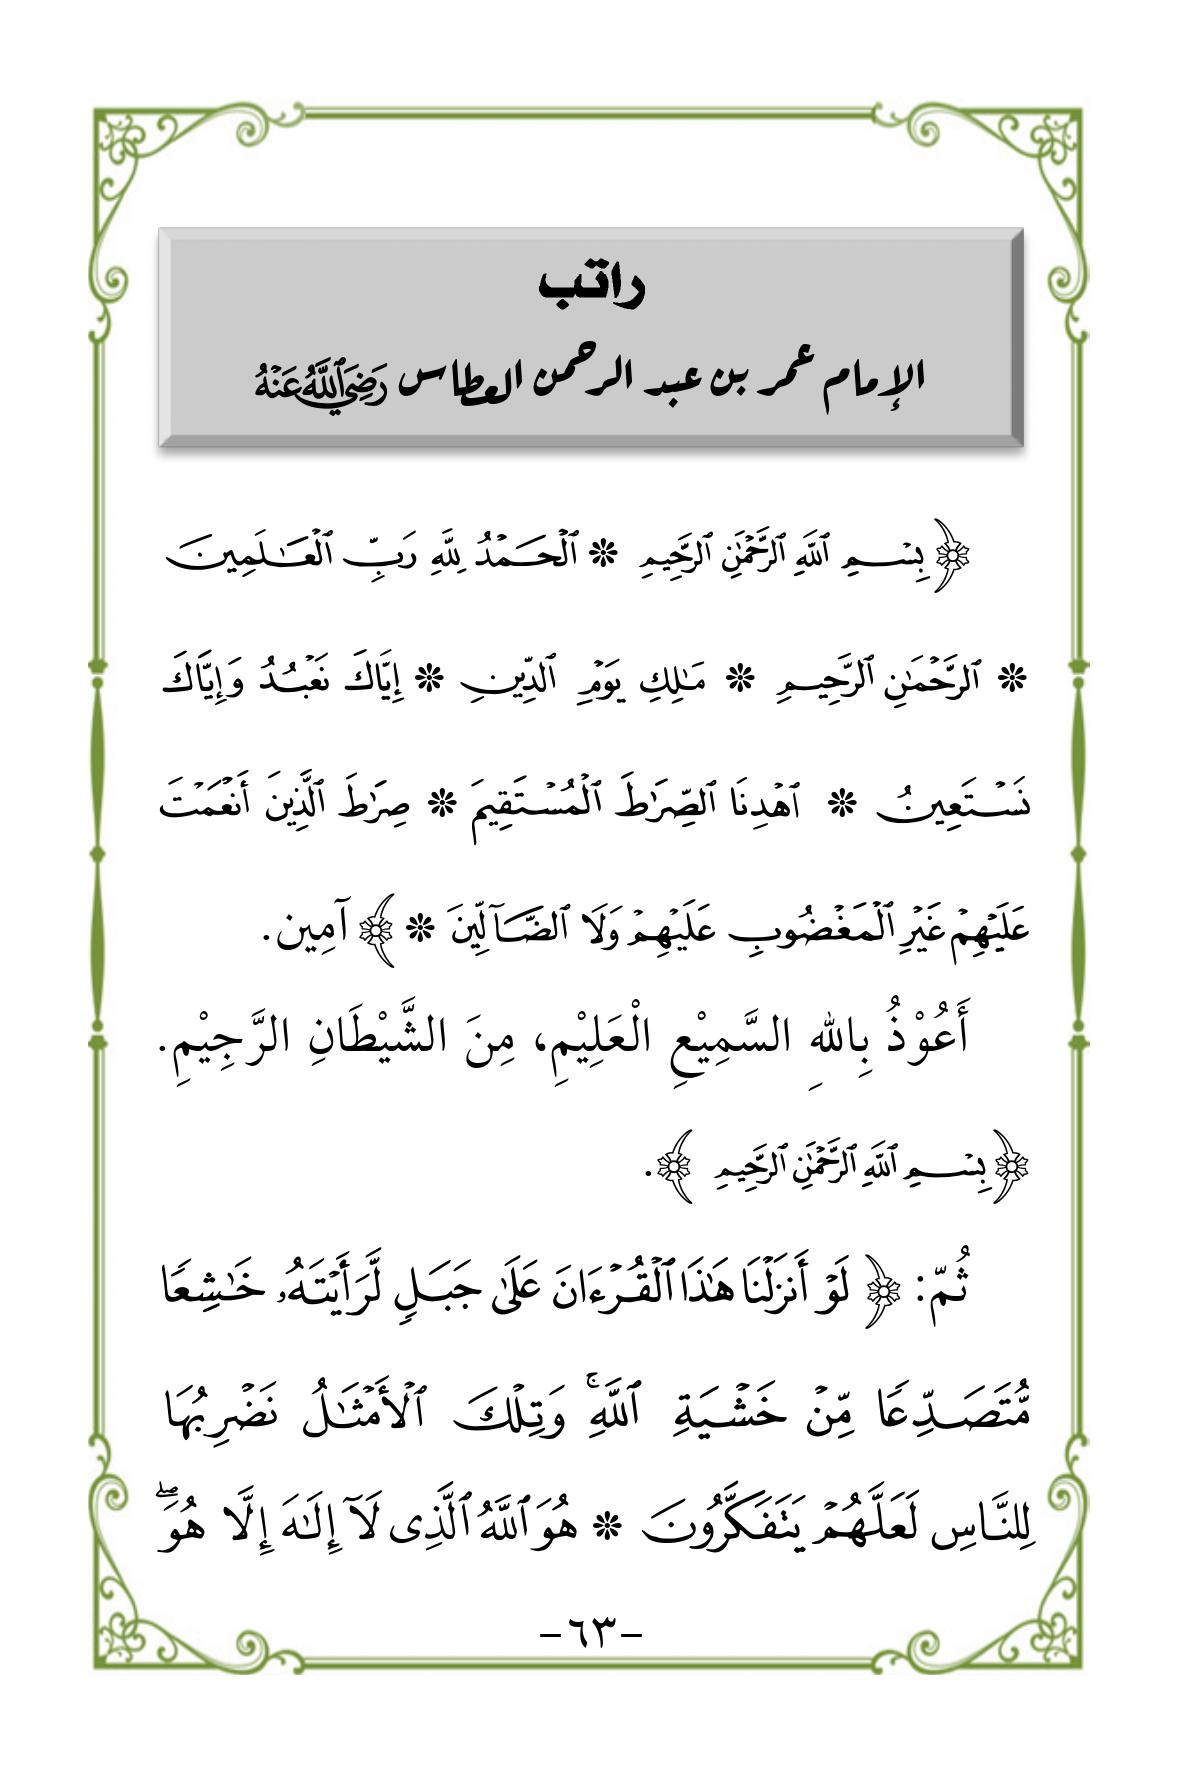 راتب
الإمام عمر بن عبد الرحمن العطاس رَضِيَ ٱللَّهُ عَنْهُ
﴿بِسْمِ ٱللَّهِ ٱلرَّحْمَٰنِ ٱلرَّحِيمِ ❊ ٱلْحَمْدُ لِلَّهِ رَبِّ ٱلْعَٰلَمِينَ
❊ ٱلرَّحْمَٰنِ ٱلرَّحِيمِ ❊ مَٰلِكِ يَوْمِ ٱلدِّينِ ❊ إِيَّاكَ نَعْبُدُ وَإِيَّاكَ
نَسْتَعِينُ ❊ ٱهْدِنَا ٱلصِّرَٰطَ ٱلْمُسْتَقِيمَ ❊ صِرَٰطَ ٱلَّذِينَ أَنْعَمْتَ
عَلَيْهِمْ غَيْرِ ٱلْمَغْضُوبِ عَلَيْهِمْ وَلَا ٱلضَّآلِّينَ ❊﴾ آمِين.
أَعُوْذُ بِاللهِ السَّمِيْعِ الْعَلِيْمِ، مِنَ الشَّيْطَانِ الرَّجِيْمِ.
﴿بِسْمِ ٱللَّهِ ٱلرَّحْمَٰنِ ٱلرَّحِيمِ ﴾.
ثُمّ: ﴿ لَوْ أَنزَلْنَا هَٰذَا ٱلْقُرْءَانَ عَلَىٰ جَبَلٍ لَّرَأَيْتَهُۥ خَٰشِعًا
مُّتَصَدِّعًا مِّنْ خَشْيَةِ ٱللَّهِۚ وَتِلْكَ ٱلْأَمْثَٰلُ نَضْرِبُهَا
لِلنَّاسِ لَعَلَّهُمْ يَتَفَكَّرُونَ ❊ هُوَ ٱللَّهُ ٱلَّذِى لَآ إِلَٰهَ إِلَّا هُوَۖ
-٦٣-